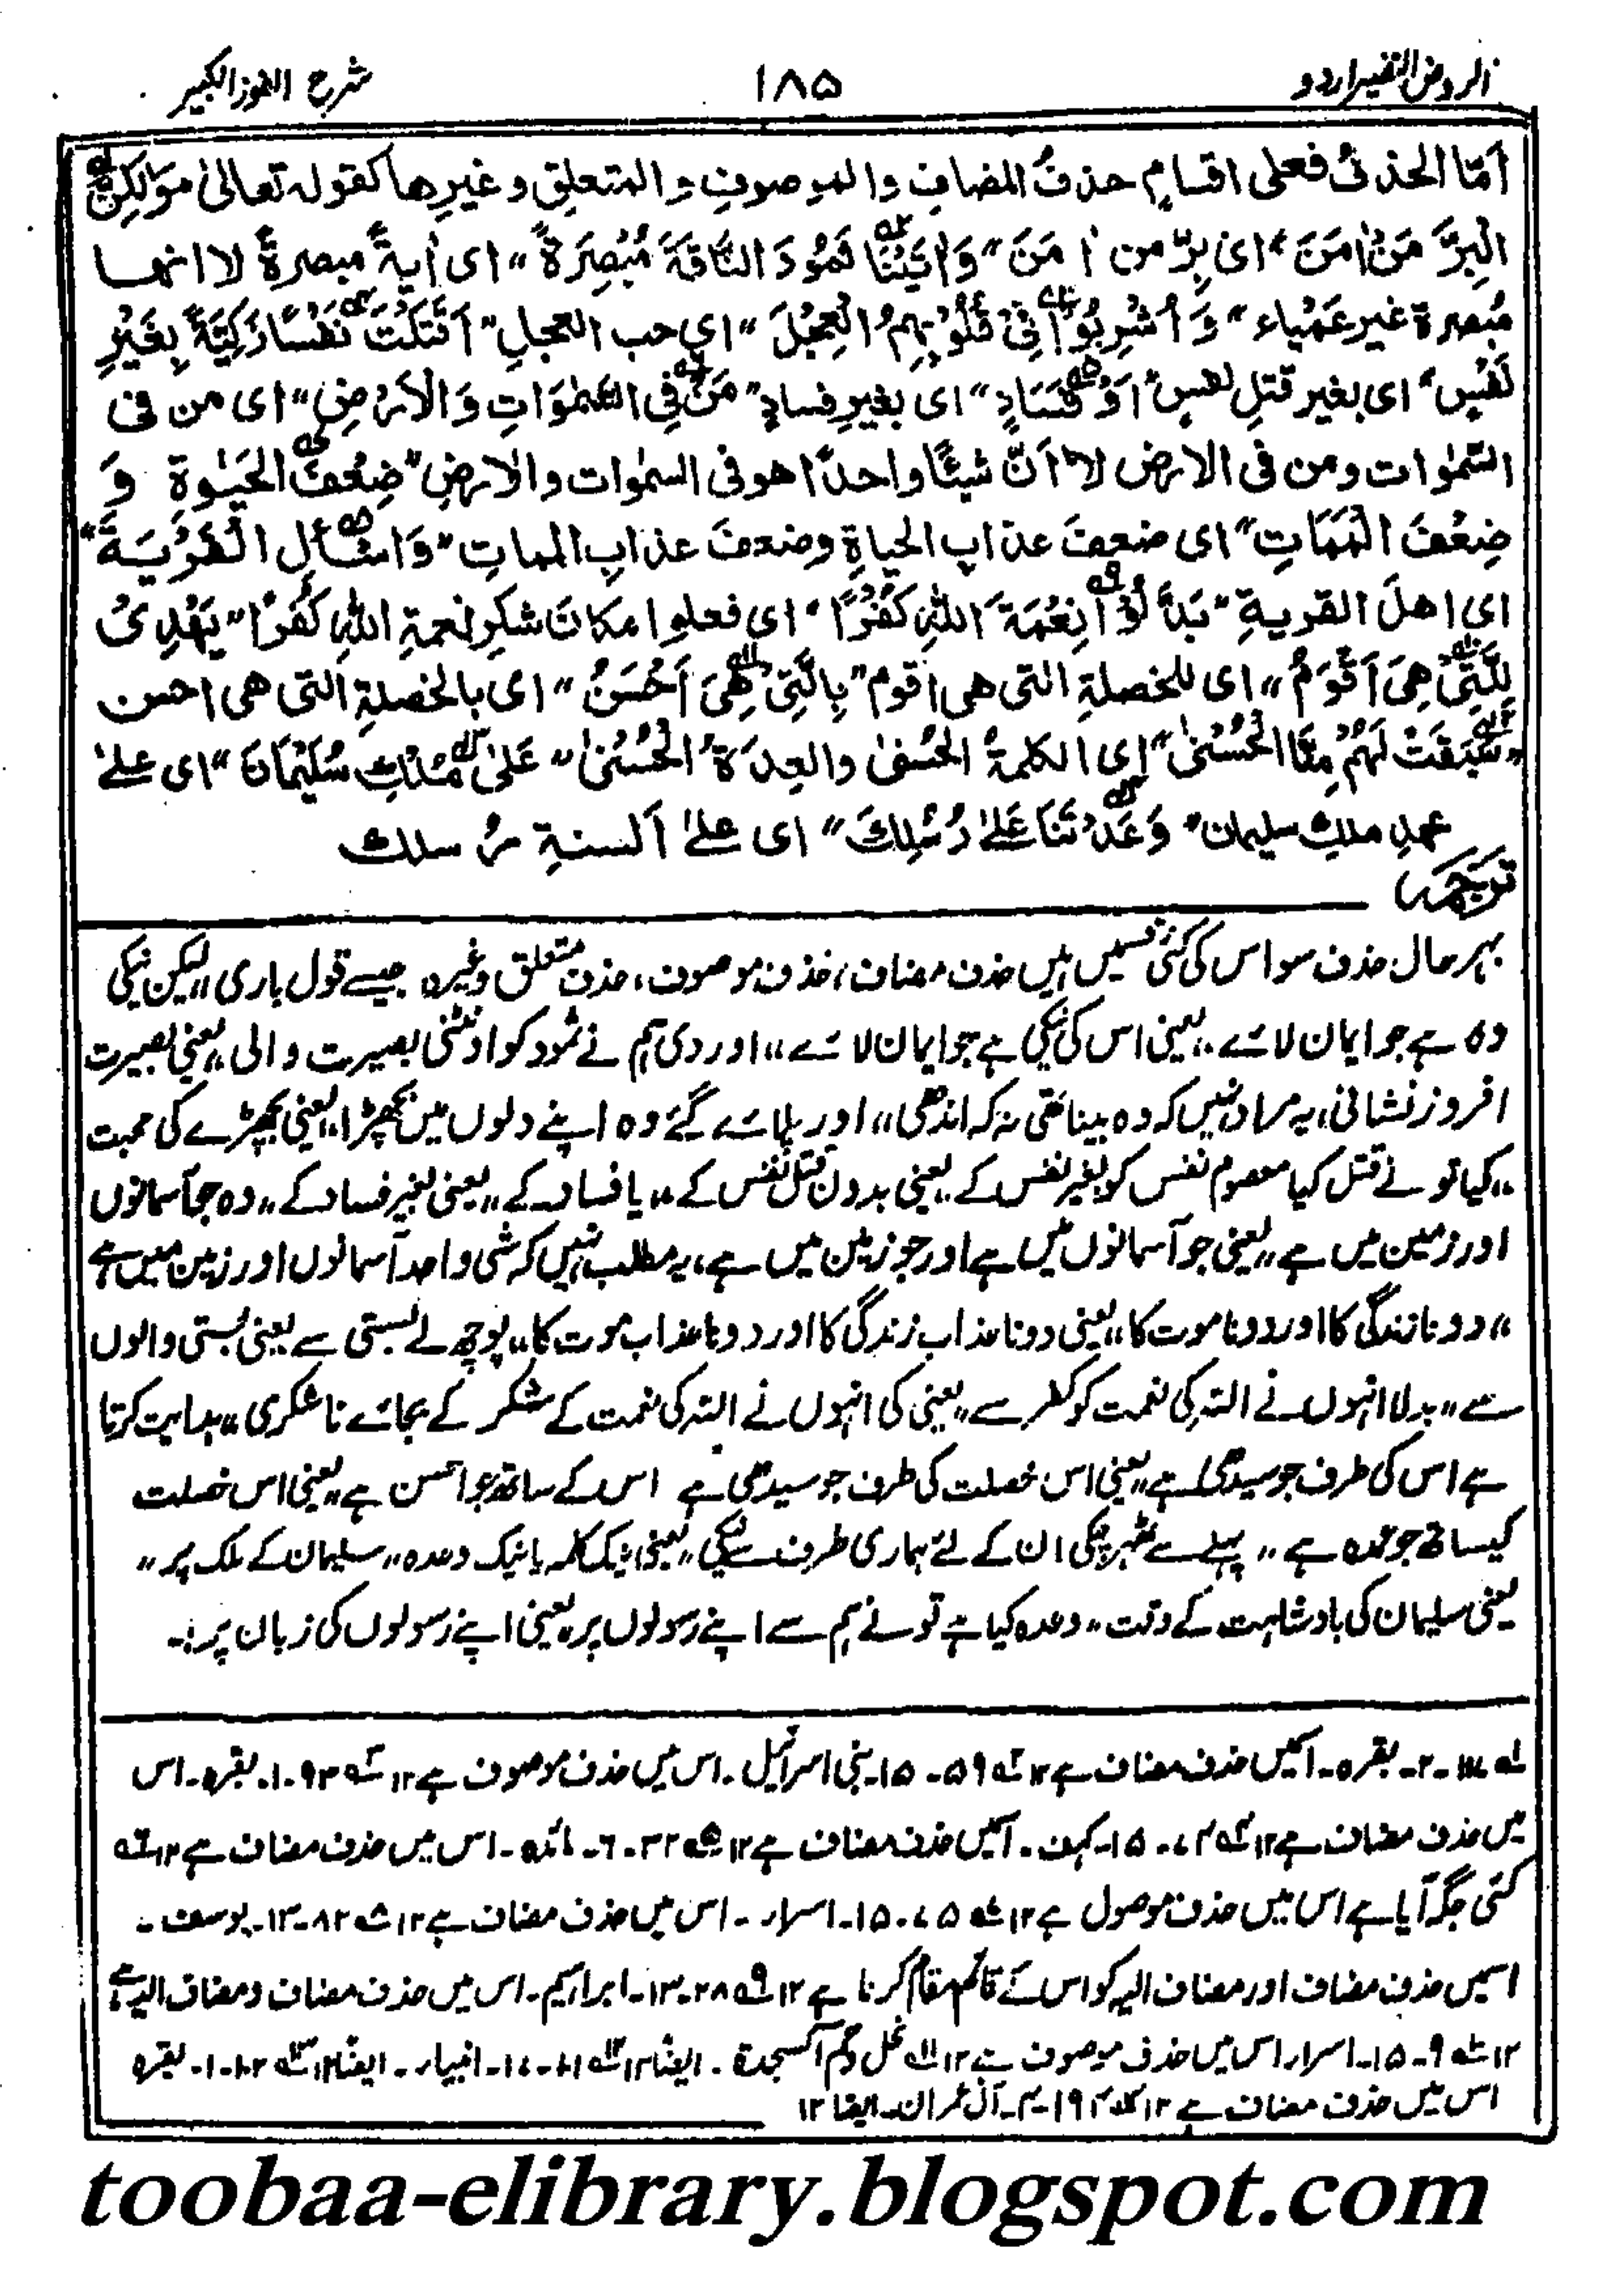 الروض النضیر اردو ۱۸۵ شرح الفوز الکبیر
اَمّا الحذفُ فعلی اقسامٍ حذفُ المضافِ والموصوفِ والمتعلِقِ وغیرِها کقولہ تعالیٰ وَلٰکِنَّ
الْبِرَّ مَنْ اٰمَنَ ” ای بِرّ من اٰمَنَ “ وَاٰتَیْنَا ثَمُوْدَ النَّاقَةَ مُبْصِرَةً “ ای اٰیةً مبصرةً لا انها
مُبصرة غیر عَمْیاء “ وَاُشْرِبُوْا فِیْ قُلُوْبِهِمُ الْعِجْلَ “ ای حب العجلِ ” اَقَتَلْتَ نَفْسًا زَکِیَّةً بِغَیْرِ
نَفْسٍ “ ای بغیر قتلِ نفسٍ ” اَوْ فَسَادٍ “ ای بغیرِ فسادٍ ” مَنْ فِی السَّمٰوَاتِ وَالْاَرْضِ “ ای من فی
السَّمٰوات ومن فی الارض لا اَنَّ شیئًا واحدًا هو فی السمٰوات والارضِ ” ضِعْفَ الْحَیٰوةِ وَ
ضِعْفَ الْمَمَاتِ “ ای ضعفَ عذابِ الحیاةِ وضعفَ عذابِ المماتِ ” وَاسْأَلِ الْقَرْیَةَ “
ای اهلَ القریةِ ” بَدَّلُوْا نِعْمَةَ اللهِ کُفْرًا “ ای فعلوا مکانَ شکرِ نعمةِ اللهِ کُفرًا ” یَهْدِیْ
لِلَّتِیْ هِیَ اَقْوَمُ “ ای للخصلةِ التی هی اقوم ” بِالَّتِیْ هِیَ اَحْسَنُ “ ای بالخصلةِ التی هی احسن
” سَبَقَتْ لَهُمْ مِنَّا الْحُسْنٰی “ ای الکلمةُ الحُسنٰی والعِدَةُ الْحُسْنٰی “ عَلٰی مُلْكِ سُلَیْمَانَ “ ای علےٰ
عهدِ ملكِ سلیمان ” وَعَدْتَّنَا عَلٰے رُسُلِكَ “ ای علےٰ اَلسنةِ رسلك
ترجمہ
بہر حال حذف سو اس کی کئی قسمیں ہیں حذف مضاف، حذف موصوف، حذف متعلق وغیرہ جیسے قول باری ،،لیکن نیکی
وہ ہے جو ایمان لائے،، یعنی اس کی نیکی ہے جو ایمان لائے ،،اور دی ہم نے ثمود کو اونٹنی بصیرت والی،، یعنی بصیرت
افروز نشانی، یہ مراد نہیں کہ وہ بینا تھی نہ کہ اندھی،، اور پلائے گئے وہ اپنے دلوں میں بچھڑا،، یعنی بچھڑے کی محبت
،،کیا تو نے قتل کیا معصوم نفس کو بغیر نفس کے،، یعنی بدون قتل نفس کے،، یا فساد کے،، یعنی بغیر فساد کے،، وہ جو آسمانوں
اور زمین میں ہے،، یعنی جو آسمانوں میں ہے اور جو زمین میں ہے، یہ مطلب نہیں کہ شی واحد آسمانوں اور زمین میں ہے
،،دونا زندگی کا اور دونا موت کا،، یعنی دونا عذاب زندگی کا اور دونا عذاب موت کا،، پوچھ لے بستی سے یعنی بستی والوں
سے،، بدلا انہوں نے اللہ کی نعمت کو کفر سے،، یعنی کی انہوں نے اللہ کی نعمت کے شکر کے بجائے ناشکری،، ہدایت کرتا
ہے اس کی طرف جو سیدھی ہے،، یعنی اس خصلت کی طرف جو سیدھی ہے اس کے ساتھ جو احسن ہے،، یعنی اس خصلت
کیساتھ جو عمدہ ہے،، پہلے سے ٹھہر چکی ان کے لئے ہماری طرف سے نیکی،، یعنی نیک کلمہ یا نیک وعدہ،، سلیمان کے ملک پر،،
یعنی سلیمان کی بادشاہت کے وقت،، وعدہ کیا ہے تو نے ہم سے اپنے رسولوں پر،، یعنی اپنے رسولوں کی زبان پر:۔
۲۔ بقرہ۔ اسمیں حذف مضاف ہے ۱۲ ۵۹۔ ۱۵۔ بنی اسرائیل۔ اس میں حذف موصوف ہے ۱۲ ۹۳۔ ۱۔ بقرہ۔ اس
میں حذف مضاف ہے ۱۲ ۷۴۔ ۱۵۔ کہف۔ اسمیں حذف مضاف ہے ۱۲ ۳۲۔ ۶۔ مائدہ۔ اس میں حذف مضاف ہے ۱۲
کئی جگہ آیا ہے اس میں حذف موصول ہے ۱۲ ۷۵۔ ۱۵۔ اسراء۔ اس میں حذف مضاف ہے ۱۲ ۸۲۔ ۱۳۔ یوسف۔
اسمیں حذف مضاف اور مضاف الیہ کو اس کے قائم مقام کرنا ہے ۱۲ ۲۸۔ ۱۳۔ ابراہیم۔ اس میں حذف مضاف و مضاف الیہ ہے
۱۲ ۹۔ ۱۵۔ اسراء اس میں حذف موصوف ہے ۱۲ نحل و حٓم السجدة۔ ایضًا ۱۲ ۱۰۱۔ ۱۷۔ انبیاء۔ ایضًا ۱۲ ۱۰۲۔ ۱۔ بقرہ
اس میں حذف مضاف ہے ۱۲ ۱۹۴۔ ۴۔ آل عمران۔ ایضا ۱۲
toobaa-elibrary.blogspot.com